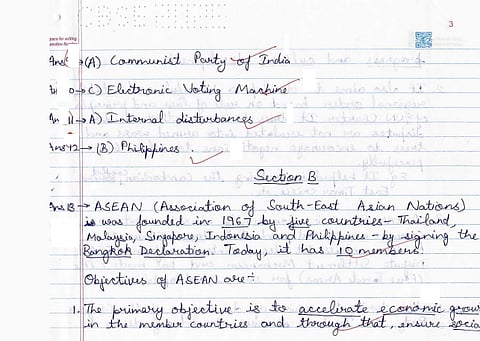 CBSE
3
space for writing
Ans (A) Communist Party of India
C) Electronic Voting Machine
An 11 → A) Internal disturbances
Ans 12 → (B) Philippines.
Section B
Ans 13 → ASEAN (Association of South-East Asian Nations)
was founded in 1967 by five countries - Thailand,
Malaysia, Singapore, Indonesia and Philippines - by signing the
Bangkok Declaration. Today, it has 10 members.
Objectives of ASEAN are:-
1. The primary objective is to accelerate economic grow
in the member countries and through that, ensure social